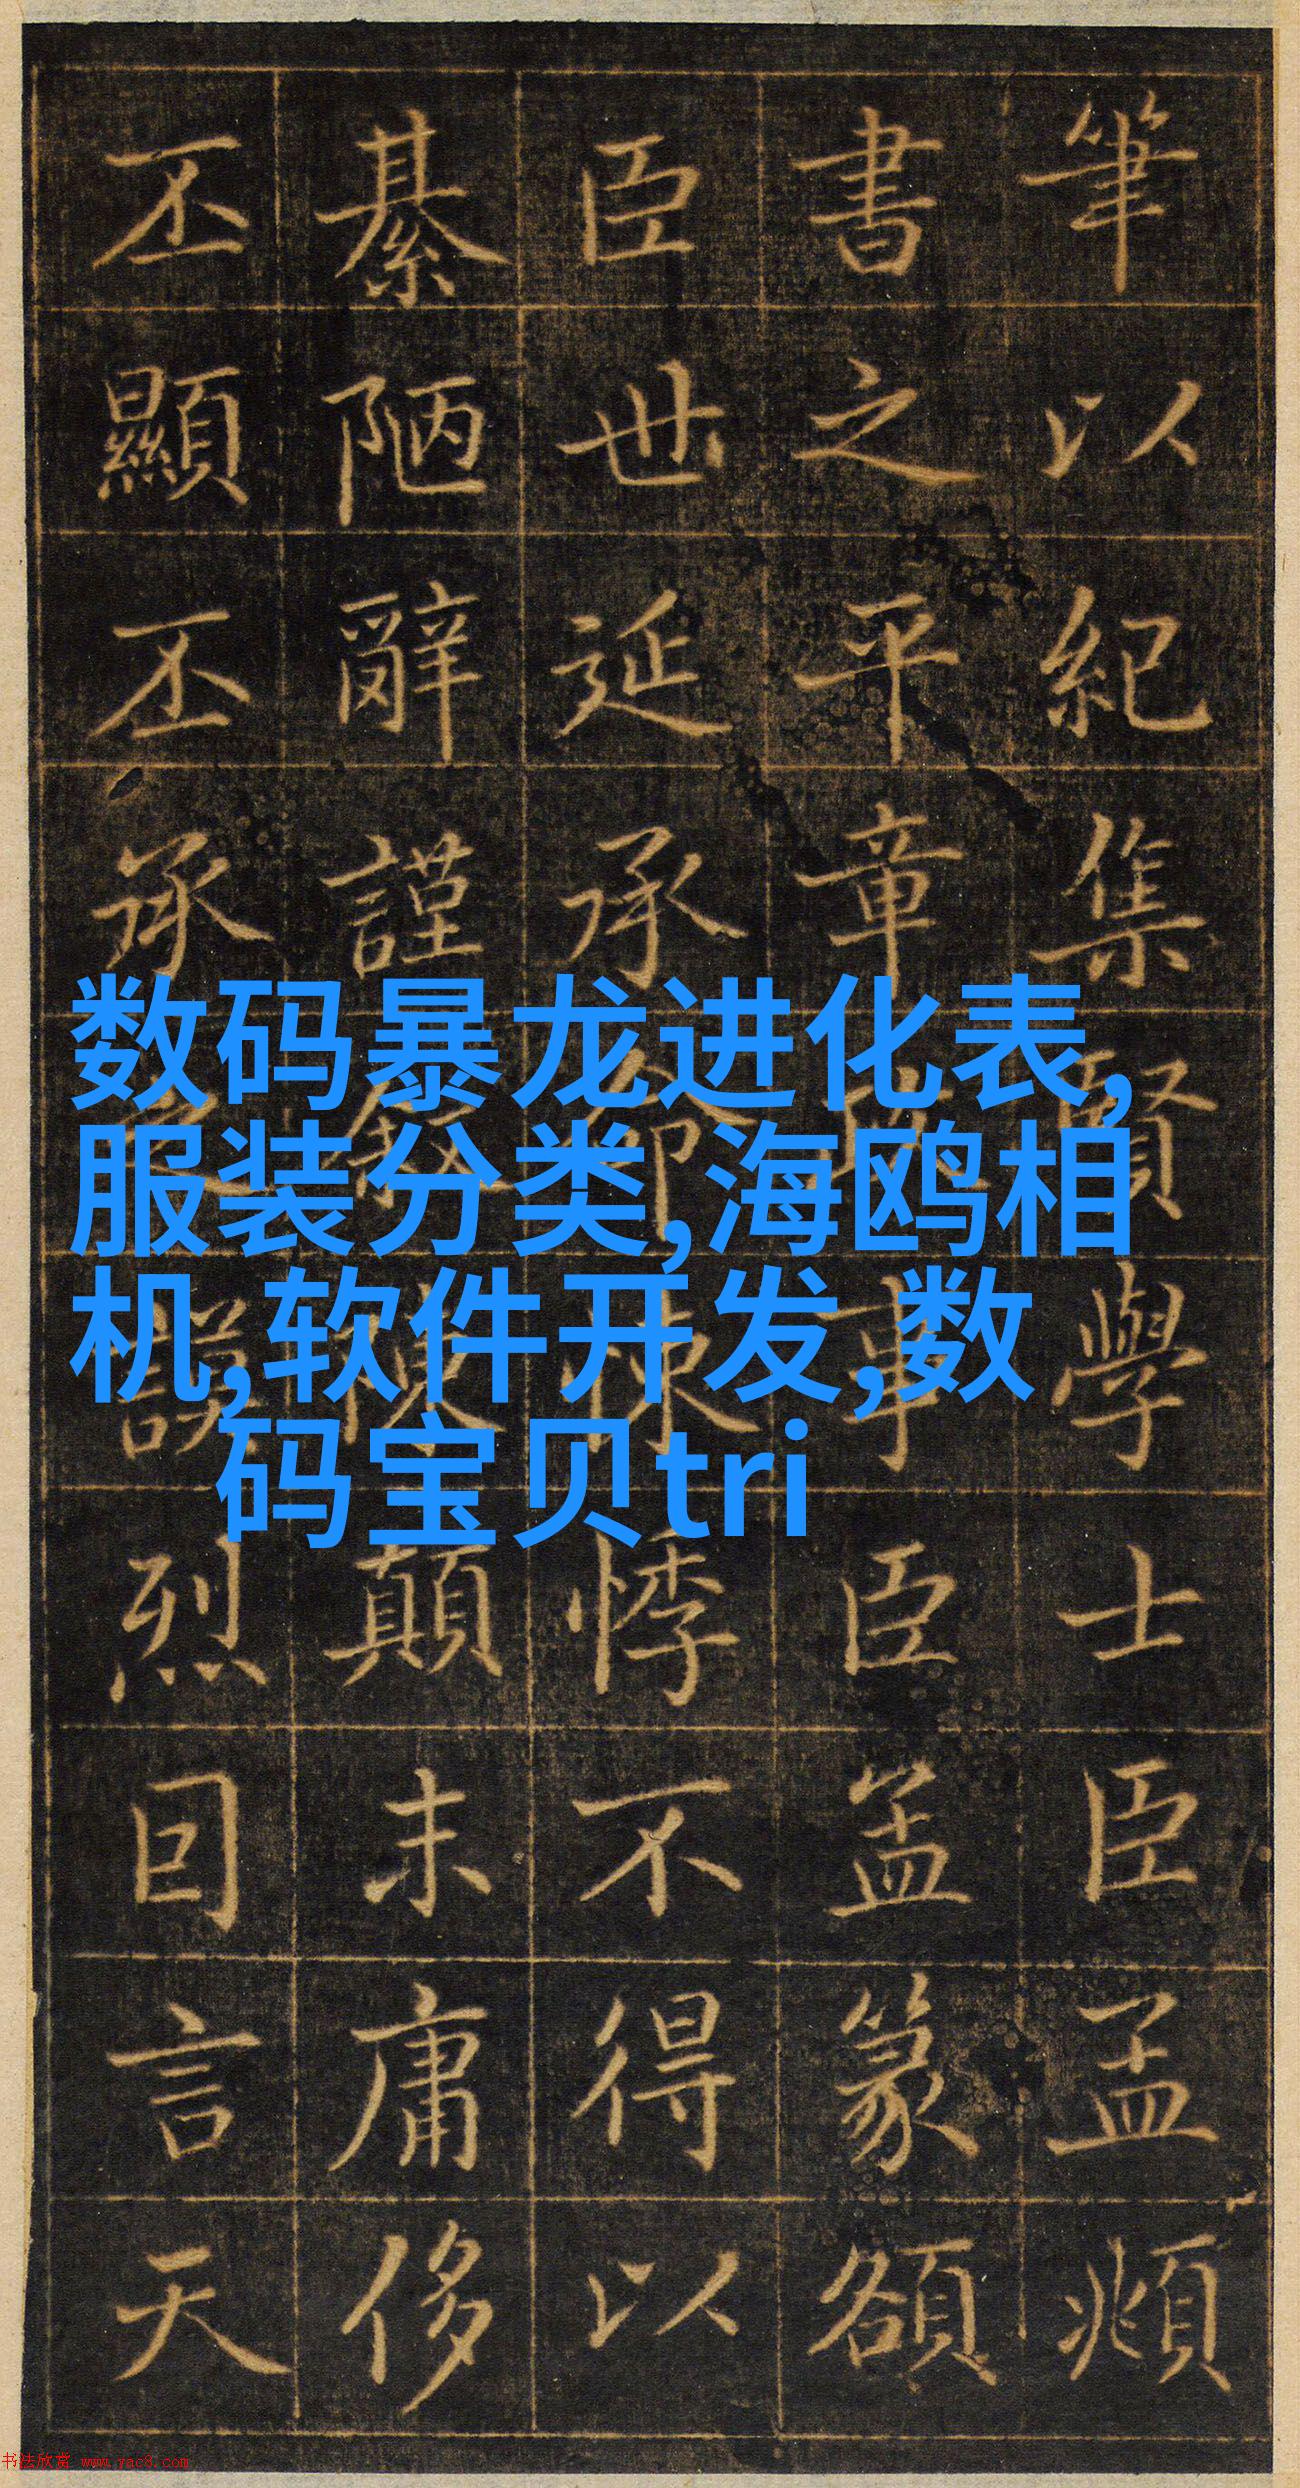 筆以紀集賢學士臣孟頫
書之平章政事臣篆額
臣世延承命悚悸不得以
綦陋辭謹叙陳顛末庸侈
丕顯丕承之謨烈囙言天
数码暴龙进化表,
服装分类,海鸥相
机,软件开发,数
码宝贝tri
书法欣赏 www.yac8.com